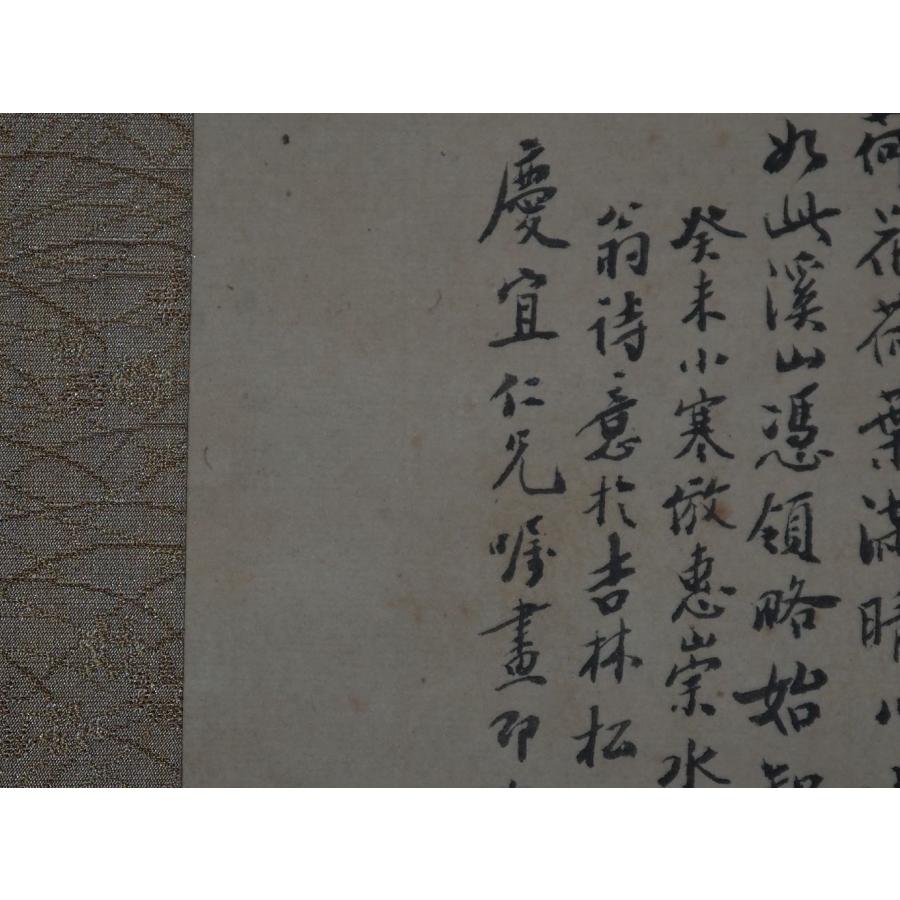 荷花荷葉满晴川
如此溪山憑領略始知
癸未小寒倣惠崇水
翁詩意於吉林松
慶宜仁兄嘱畫即